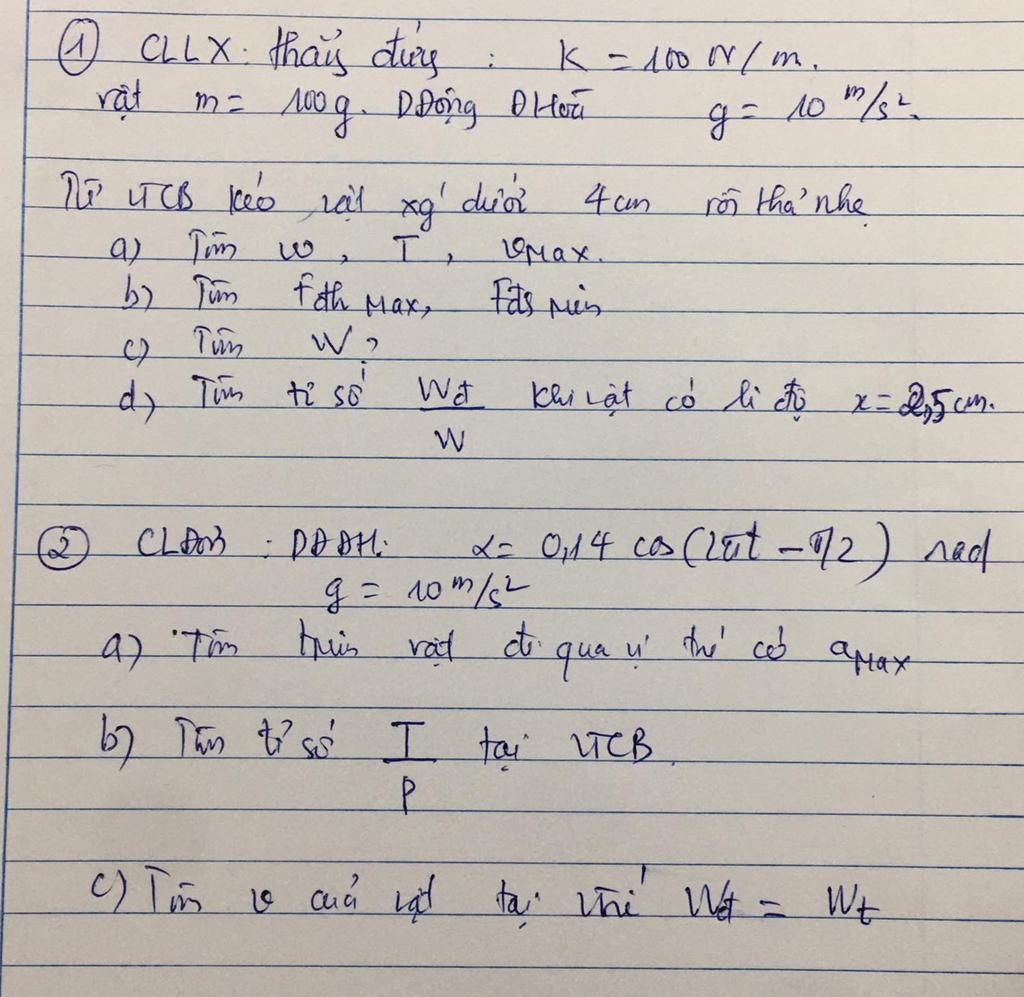 ① CLLX: thẳng đứng : K = 100 N/m.
vật m = 100g. DĐộng ĐHoà g = 10 m/s².
Từ VTCB kéo vật xg´ dưới 4cm rồi thả nhẹ
a) Tìm ω, T, vMax.
b) Tìm Fđh Max, Fđh Min
c) Tìm W?
d) Tìm tỉ số Wđ/W khi vật có li độ x = 2,5cm.
② CLĐơn : DĐĐH: α = 0,14 cos(2πt - π/2) rad
g = 10 m/s²
a) Tìm tmin vật đi qua vị thế có aMax
b) Tìm tỉ số T/P tại VTCB.
c) Tìm v của vật tại vị trí Wđ = Wt